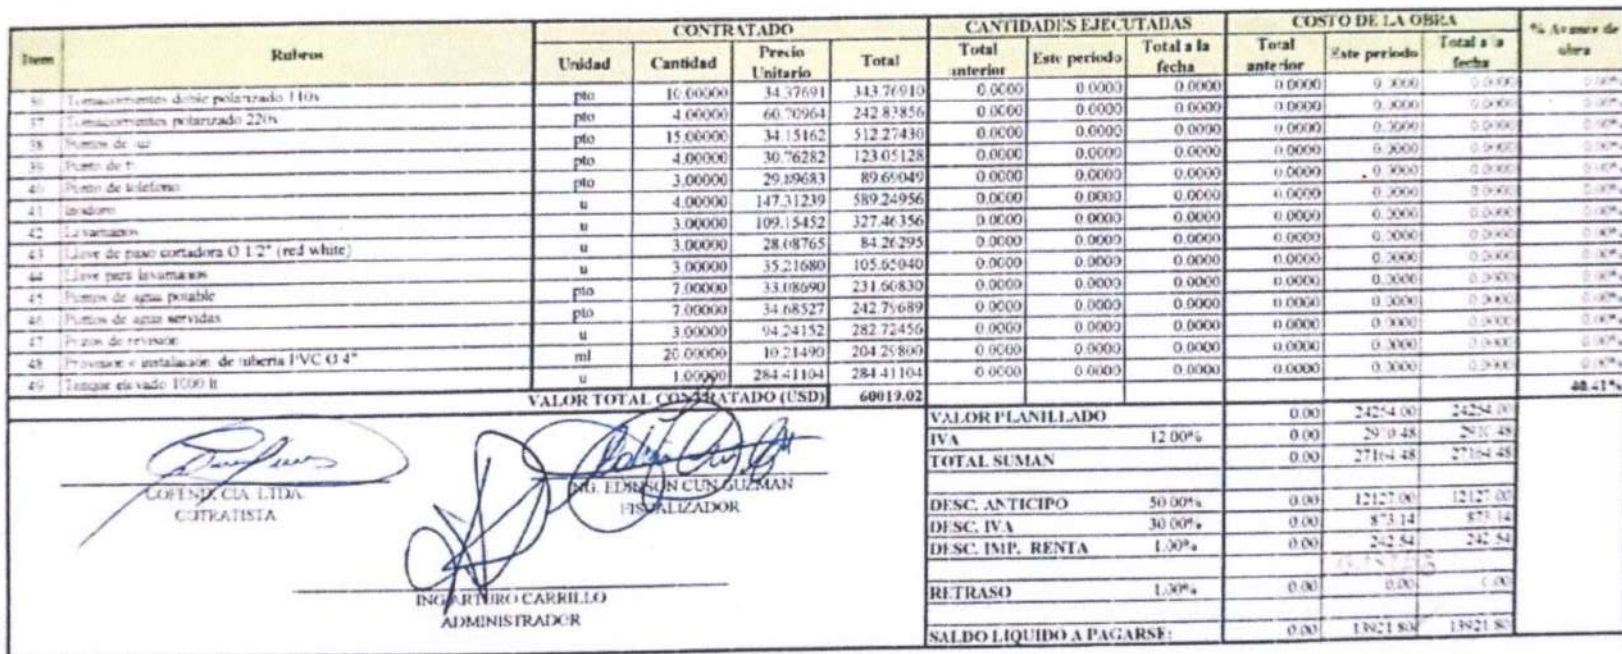 Item Rubros CONTRATADO CANTIDADES EJECUTADAS COSTO DE LA OBRA % Avance de obra
Unidad Cantidad Precio Unitario Total Total anterior Este periodo Total a la fecha Total anterior Este periodo Total a la fecha
36 Tomacorrientes doble polarizado 110v pto 10.00000 34.37691 343.76910 0.0000 0.0000 0.0000 0.0000 0.0000 0.0000 0.00%
37 Tomacorrientes polarizado 220v pto 4.00000 60.70964 242.83856 0.0000 0.0000 0.0000 0.0000 0.0000 0.0000 0.00%
38 Puntos de luz pto 15.00000 34.15162 512.27430 0.0000 0.0000 0.0000 0.0000 0.0000 0.0000 0.00%
39 Punto de pto 4.00000 30.76282 123.05128 0.0000 0.0000 0.0000 0.0000 0.0000 0.0000 0.00%
40 Punto de teléfono pto 3.00000 29.89683 89.69049 0.0000 0.0000 0.0000 0.0000 0.0000 0.0000 0.00%
41 Inodoro u 4.00000 147.31239 589.24956 0.0000 0.0000 0.0000 0.0000 0.0000 0.0000 0.00%
42 Lavamanos u 3.00000 109.15452 327.46356 0.0000 0.0000 0.0000 0.0000 0.0000 0.0000 0.00%
43 Llave de paso cortadora O 1/2" (red white) u 3.00000 28.08765 84.26295 0.0000 0.0000 0.0000 0.0000 0.0000 0.0000 0.00%
44 Llave para lavamanos u 3.00000 35.21680 105.65040 0.0000 0.0000 0.0000 0.0000 0.0000 0.0000 0.00%
45 Puntos de agua potable pto 7.00000 33.08690 231.60830 0.0000 0.0000 0.0000 0.0000 0.0000 0.0000 0.00%
46 Puntos de aguas servidas pto 7.00000 34.68527 242.79689 0.0000 0.0000 0.0000 0.0000 0.0000 0.0000 0.00%
47 Pozos de revisión u 3.00000 94.24152 282.72456 0.0000 0.0000 0.0000 0.0000 0.0000 0.0000 0.00%
48 Provisión e instalación de tubería PVC O 4" ml 20.00000 10.21490 204.29800 0.0000 0.0000 0.0000 0.0000 0.0000 0.0000 0.00%
49 Tanque elevado 1000 lt u 1.00000 284.41104 284.41104 0.0000 0.0000 0.0000 0.0000 0.0000 0.0000 0.00%
VALOR TOTAL CONTRATADO (USD) 60019.02 40.41%
VALOR PLANILLADO 0.00 24254.00 24254.00
IVA 12.00% 0.00 2910.48 2910.48
TOTAL SUMAN 0.00 27164.48 27164.48
COFENIX CIA. LTDA.
COTRATISTA
ING. EDINSON CUN GUZMAN
FISCALIZADOR
DESC. ANTICIPO 50.00% 0.00 12127.00 12127.00
DESC. IVA 30.00% 0.00 873.14 873.14
DESC. IMP. RENTA 1.00% 0.00 242.54 242.54
RETRASO 1.00% 0.00 0.00 0.00
ING ARTURO CARRILLO
ADMINISTRADOR
SALDO LIQUIDO A PAGARSE: 0.00 13921.80 13921.80